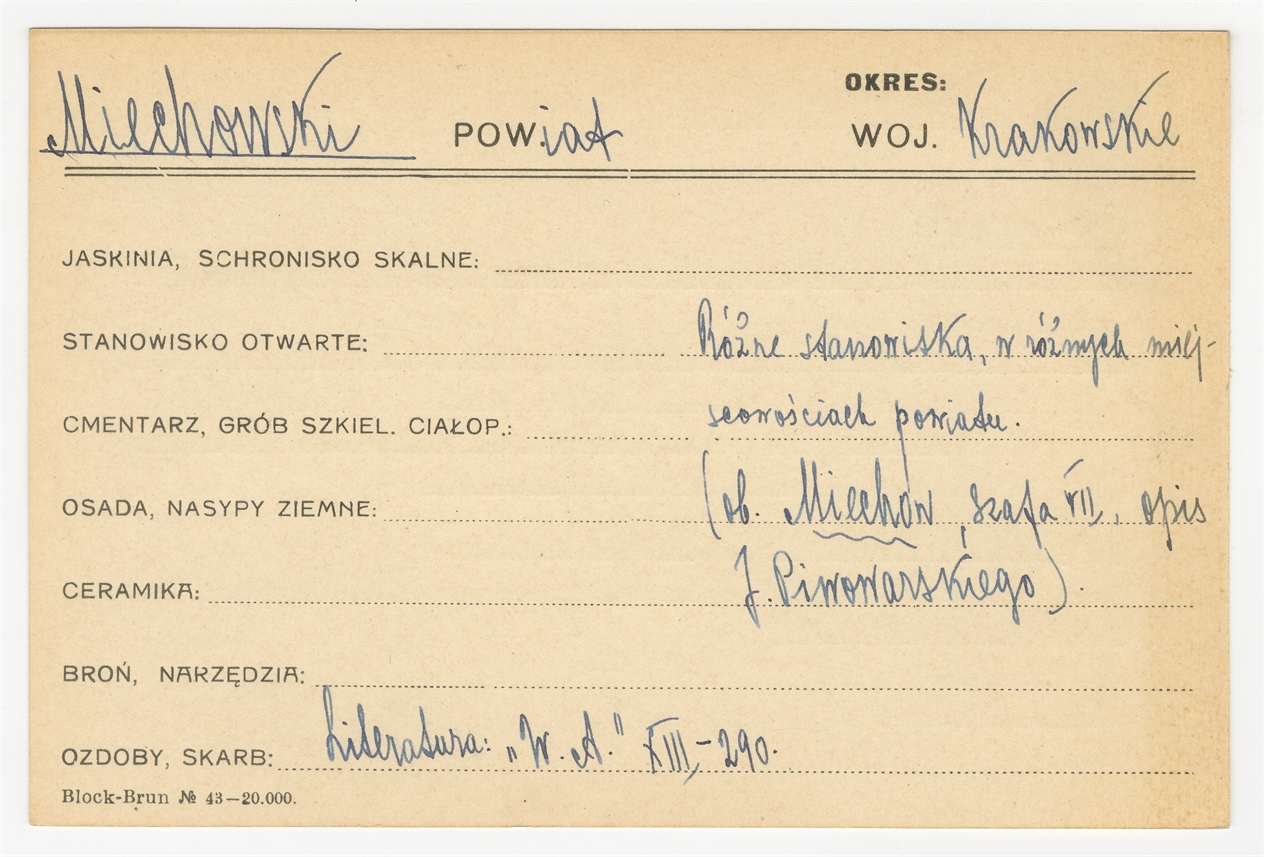 OKRES:
Miechowski POW.iat WOJ. Krakowskie
JASKINIA, SCHRONISKO SKALNE:
STANOWISKO OTWARTE: Różne stanowiska, w różnych miej-
CMENTARZ, GRÓB SZKIEL. CIAŁOP.: scowościach powiatu.
OSADA, NASYPY ZIEMNE: (ob. Miechów, szafa VII, opis
CERAMIKA: J. Piwowarskiego).
BROŃ, NARZĘDZIA:
OZDOBY, SKARB: Literatura: „W. A." XIII,-290.
Block-Brun № 43—20.000.